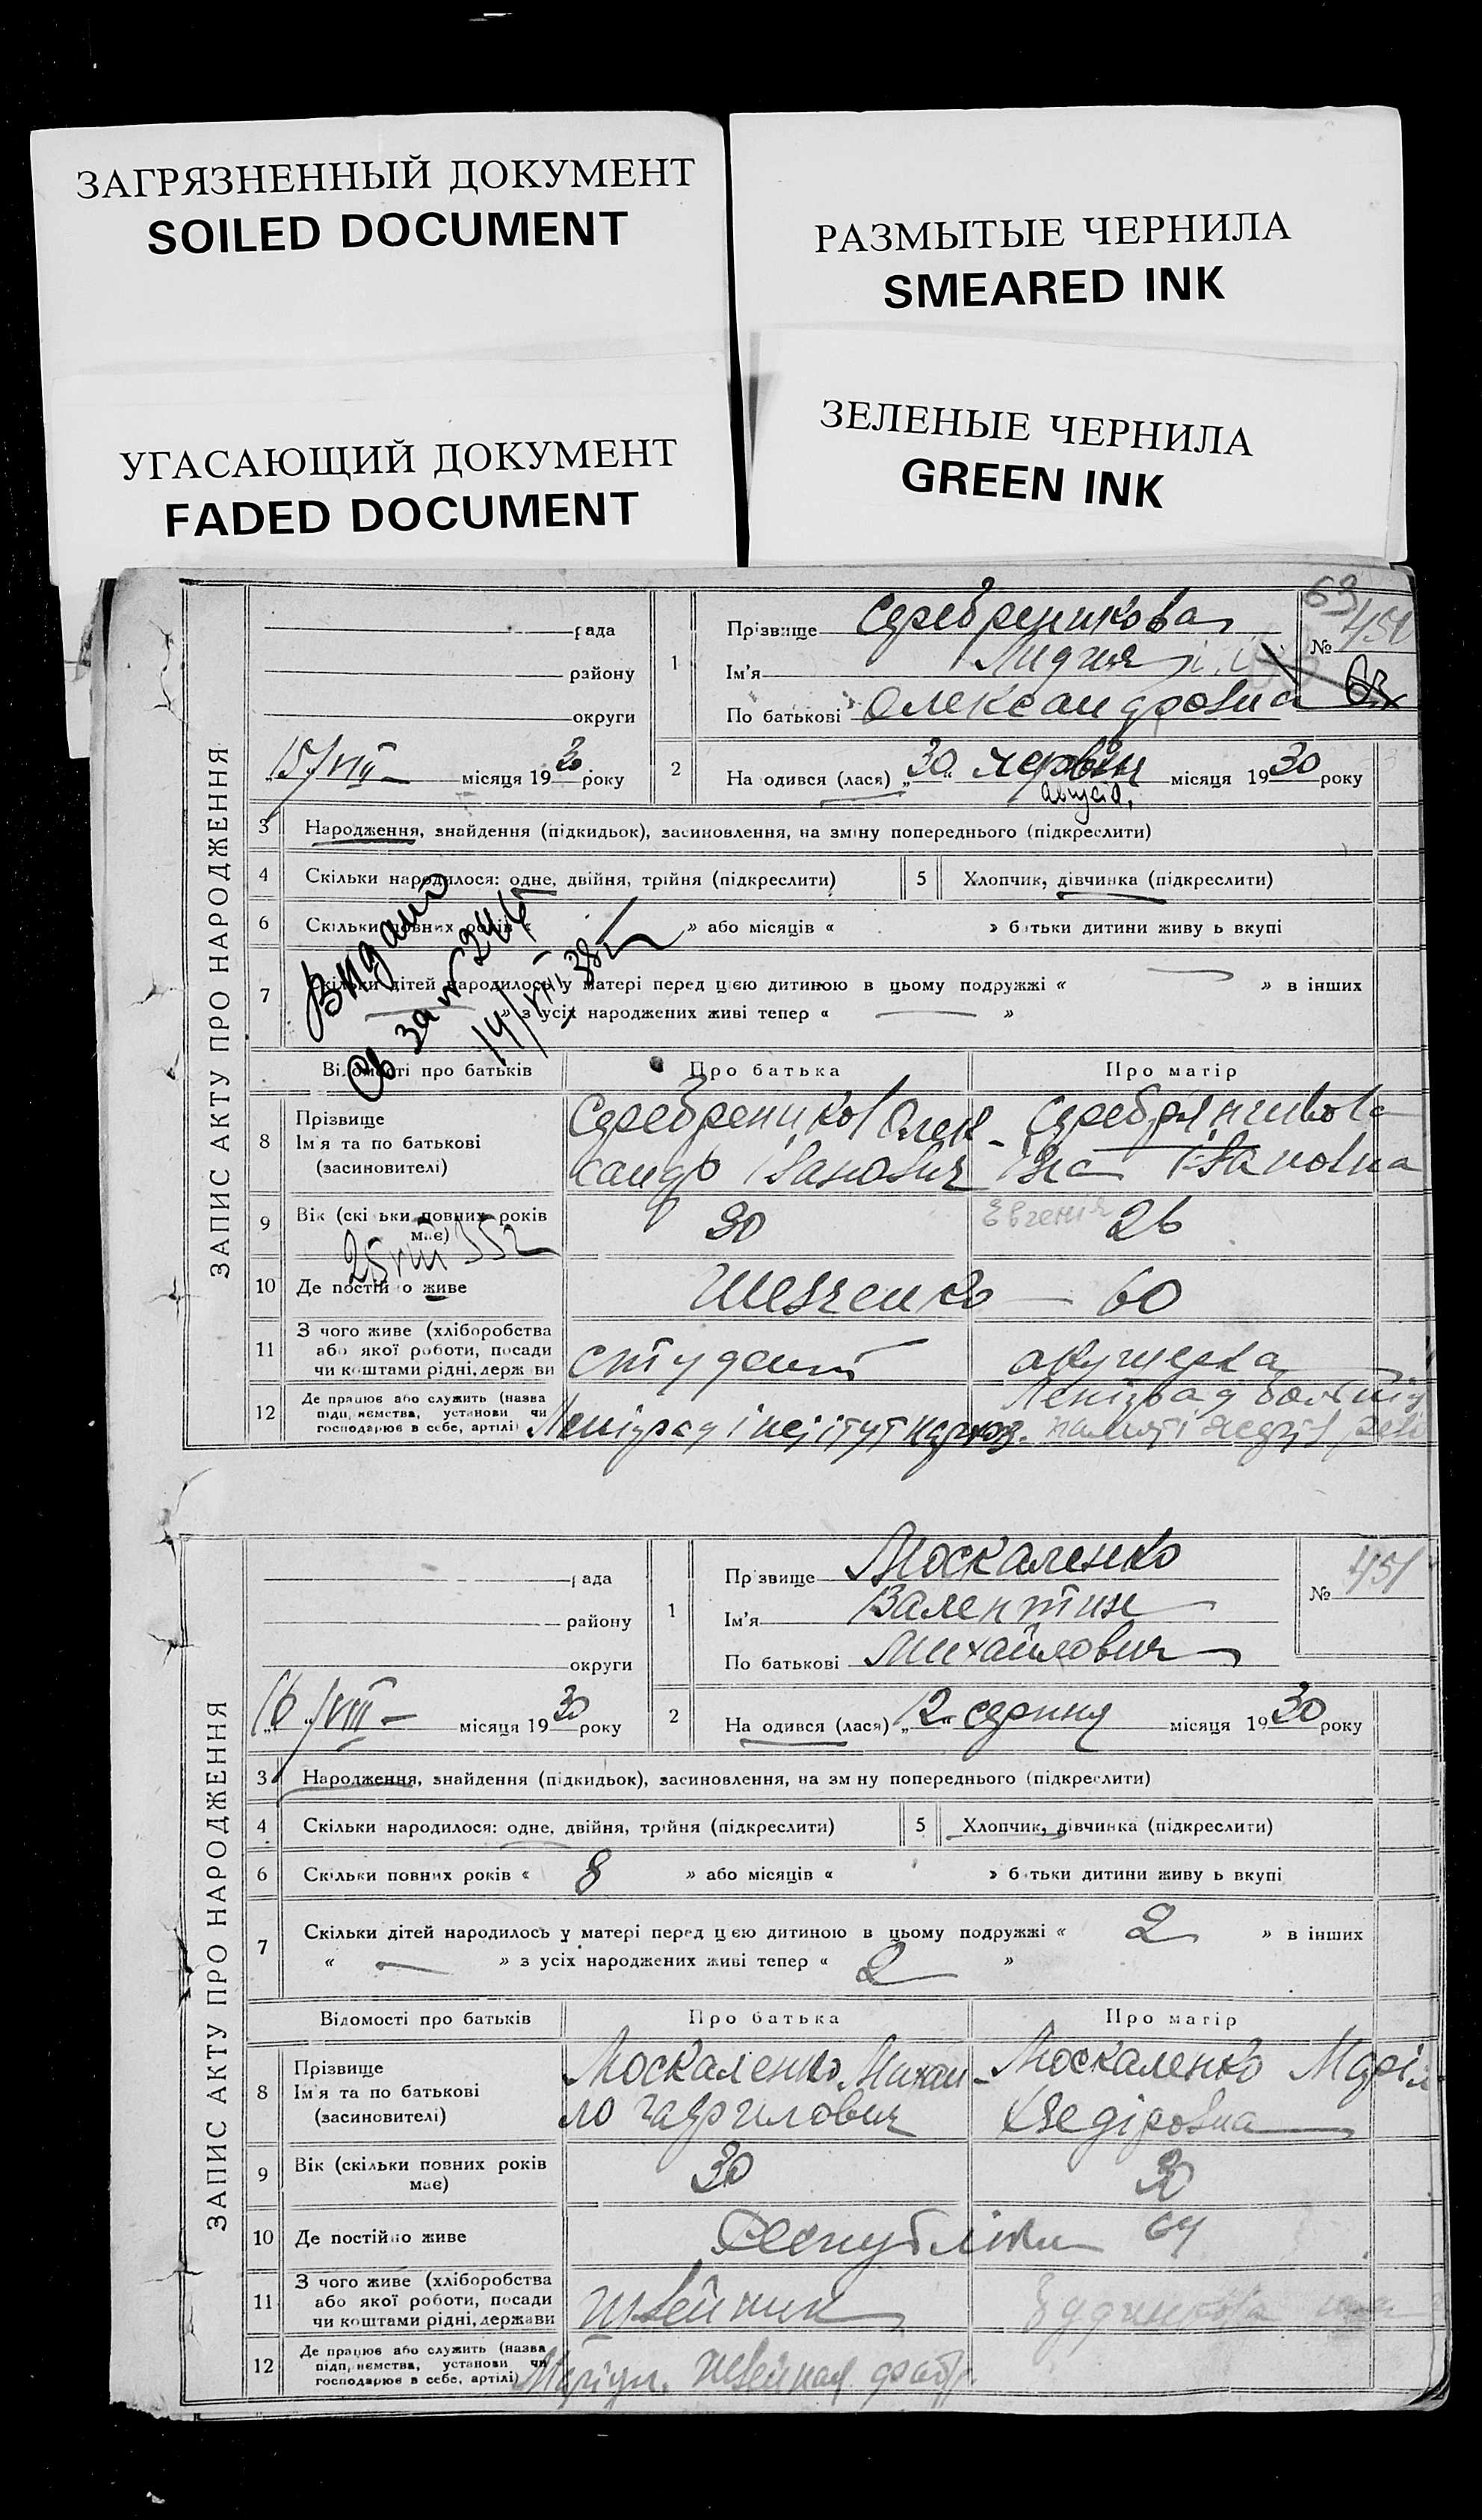 ЗАГРЯЗНЕННЫЙ ДОКУМЕНТ
SOILED DOCUMENT
РАЗМЫТЫЕ ЧЕРНИЛА
SMEARED INK
УГАСАЮЩИЙ ДОКУМЕНТ
FADED DOCUMENT
ЗЕЛЕНЫЕ ЧЕРНИЛА
GREEN INK
ЗАПИС АКТУ ПРО НАРОДЖЕННЯ
рада
району
округи
15/VIII – місяця 1930 року
63
№ 450
1 Прізвище Серебреникова
Ім'я Лидия
По батькові Олександровна
2 На одився (лася) „30" червня місяця 1930 року
августа
3 Народження, знайдення (підкидьок), засиновлення, на зміну попереднього (підкреслити)
4 Скільки народилося: одне, двійня, трійня (підкреслити) 5 Хлопчик, дівчинка (підкреслити)
6 Скільки повних років « » або місяців « » батьки дитини живу ь вкупі
7 Скільки дітей народилось у матері перед цією дитиною в цьому подружжі « — » в інших
» з усіх народжених живі тепер « — »
Видано
Св за №
14/VIII 38
Відомості про батьків Про батька Про матір
8 Прізвище Ім'я та по батькові (засиновителі)
Серебреников Олек-
сандр Іванович
Серебрянникова
Івановна
Евгенія
9 Вік (скі ьки повних років має) 30 26
25 VIII
10 Де постій о живе Шевченко — 60
11 З чого живе (хліборобства або якої роботи, посади чи коштами рідні, держави студент акушерка
12 Де працює або служить (назва підприємства, установи чи господарює в себе, артілі)
Ленінград інститут
Ленінград
ЗАПИС АКТУ ПРО НАРОДЖЕННЯ
рада
району
округи
16/VIII – місяця 1930 року
№ 451
1 Пр звище Москаленко
Ім'я Валентин
По батькові Михайлович
2 На одився (лася) „12" серпня місяця 1930 року
3 Народження, знайдення (підкидьок), засиновлення, на зм ну попереднього (підкреслити)
4 Скільки народилося: одне, двійня, трійня (підкреслити) 5 Хлопчик, дівчинка (підкреслити)
6 Скільки повних років « 8 » або місяців « » б тьки дитини живу ь вкупі
7 Скільки дітей народилось у матері перед цією дитиною в цьому подружжі « 2 » в інших
« — » з усіх народжених живі тепер « 2 »
Відомості про батьків Про батька Про матір
8 Прізвище Ім'я та по батькові (засиновителі)
Москаленко Михай-
ло Гаврилович
Москаленко Марія
9 Вік (скільки повних років має) 30 30
10 Де постійно живе Республіки 64
11 З чого живе (хліборобства або якої роботи, посади чи коштами рідні, держави швейник
12 Де працює або служить (назва підприємства, установи чи господарює в себе, артілі)
Маріуп. Швейная фабр.